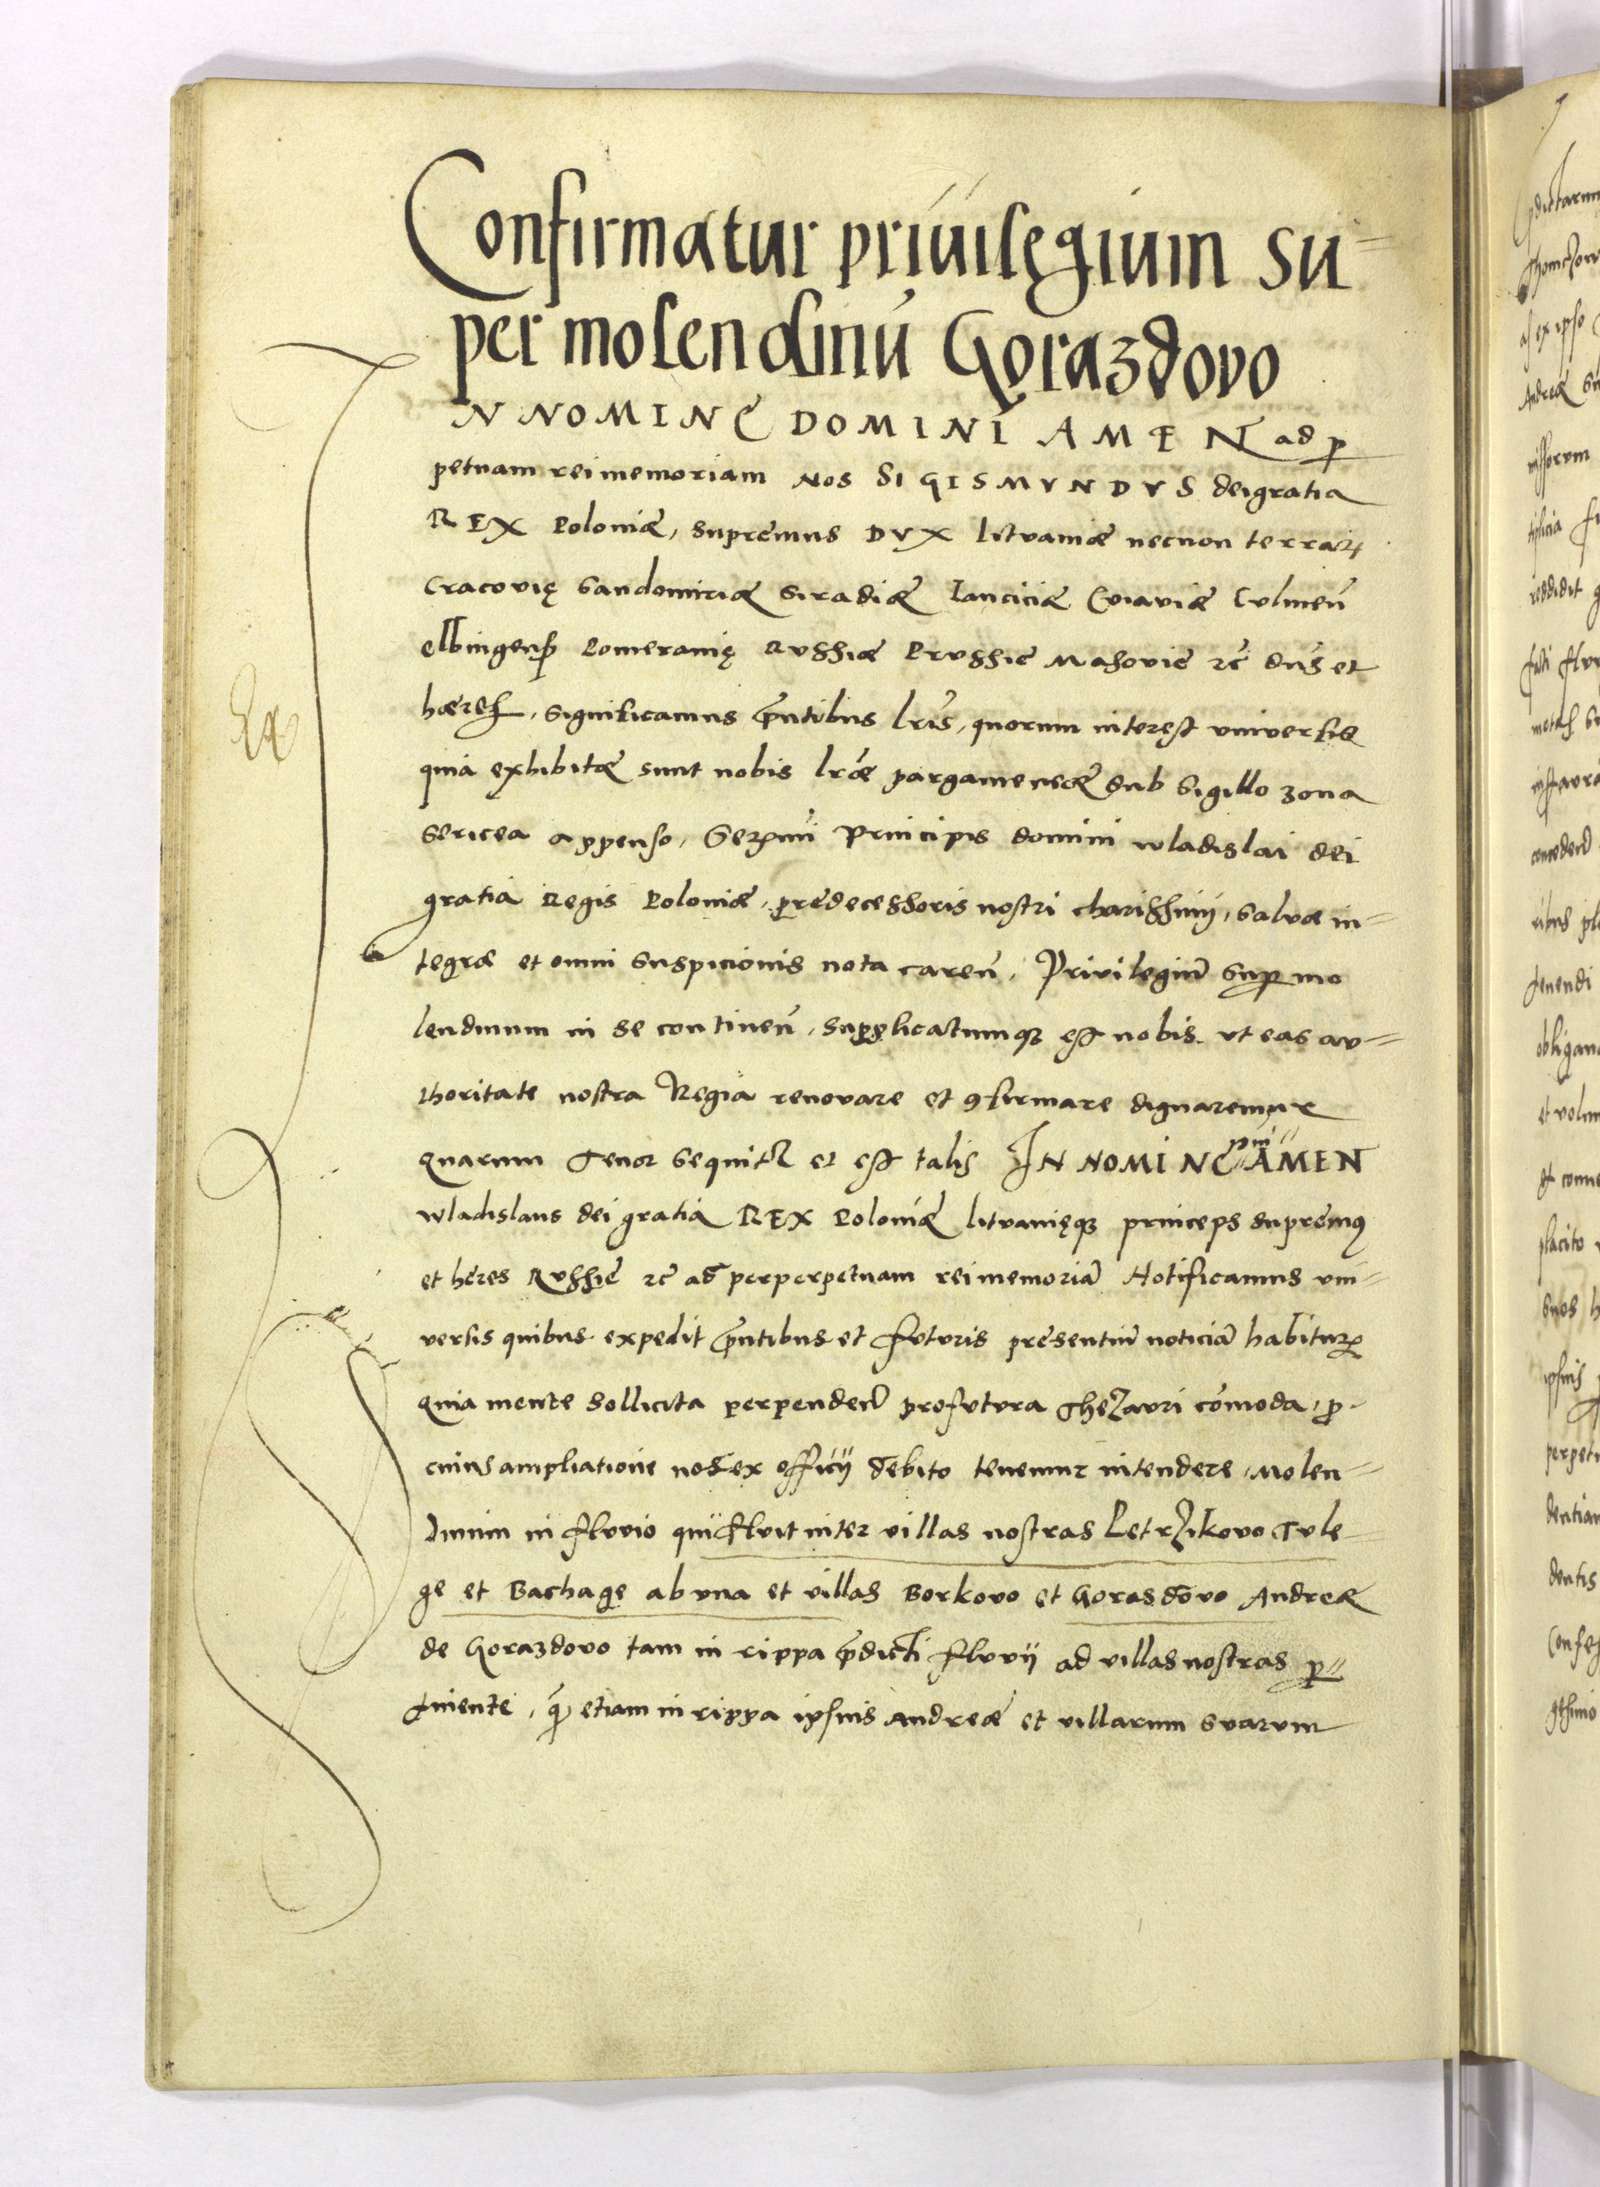 Confirmatur priuilegium su-
per molendinū Gorazdovo
IN NOMINE DOMINI AMEN ad p
petuam rei memoriam Nos SIGISMVNDVS dei gratia
REX Poloniæ, supremus DVX lituaniæ necnon terraꝝ
Cracovię Sandomiriæ Siradiæ Lanciciæ Cuiaviæ Culmeñ
elbingensꝭ Pomeranię Russiæ Prussie Masovie ꝛc̄ dn̄s et
hæres, Significamus p̄ntibus lr̄is, quorum interest universis
quia exhibitæ sunt nobis lr̄æ pargameneæ sub Sigillo zona
Sericea appenso, Serᵐⁱ Principis domini wladislai dei
gratia Regis Poloniæ, predecessoris nostri charissimi, Salvæ in-
tegræ et omni Suspicionis nota careñ, Privilegiū Suꝑ mo
lendinum in se continen̄, supplicatumqꝫ est nobis vt eas au-
thoritate nostra Regia renovare et ꝯfirmare dignaremur
Quarum Tenor Sequitꝛ et est talis IN NOMINE dni AMEN
Wladislaus dei gratia REX Poloniæ litvanięqꝫ princeps supremꝯ
et heres Russie ꝛc̄ ad perperpetuam rei memoriā Notificamus vni-
versis quibus expedit p̄ntibus et fvtvris presentiū noticiā habiturꝭ
Quia mente Sollicita perpenden̄ profutura Thezauri cōmoda, ꝓ
cuius ampliatione nos ex officij debito tenemur intendere, Molen-
dinum in fluvio qui fluit inter villas nostras Petrzikovo Tule-
ge et Bachage ab vna et villas Borkovo et Gorasdovo Andreæ
de Gorazdovo tam in rippa p̄dicti fluvij ad villas nostras ꝑ-
tinente, qꝫ etiam in rippa ipsius Andreæ et villarum Suarum